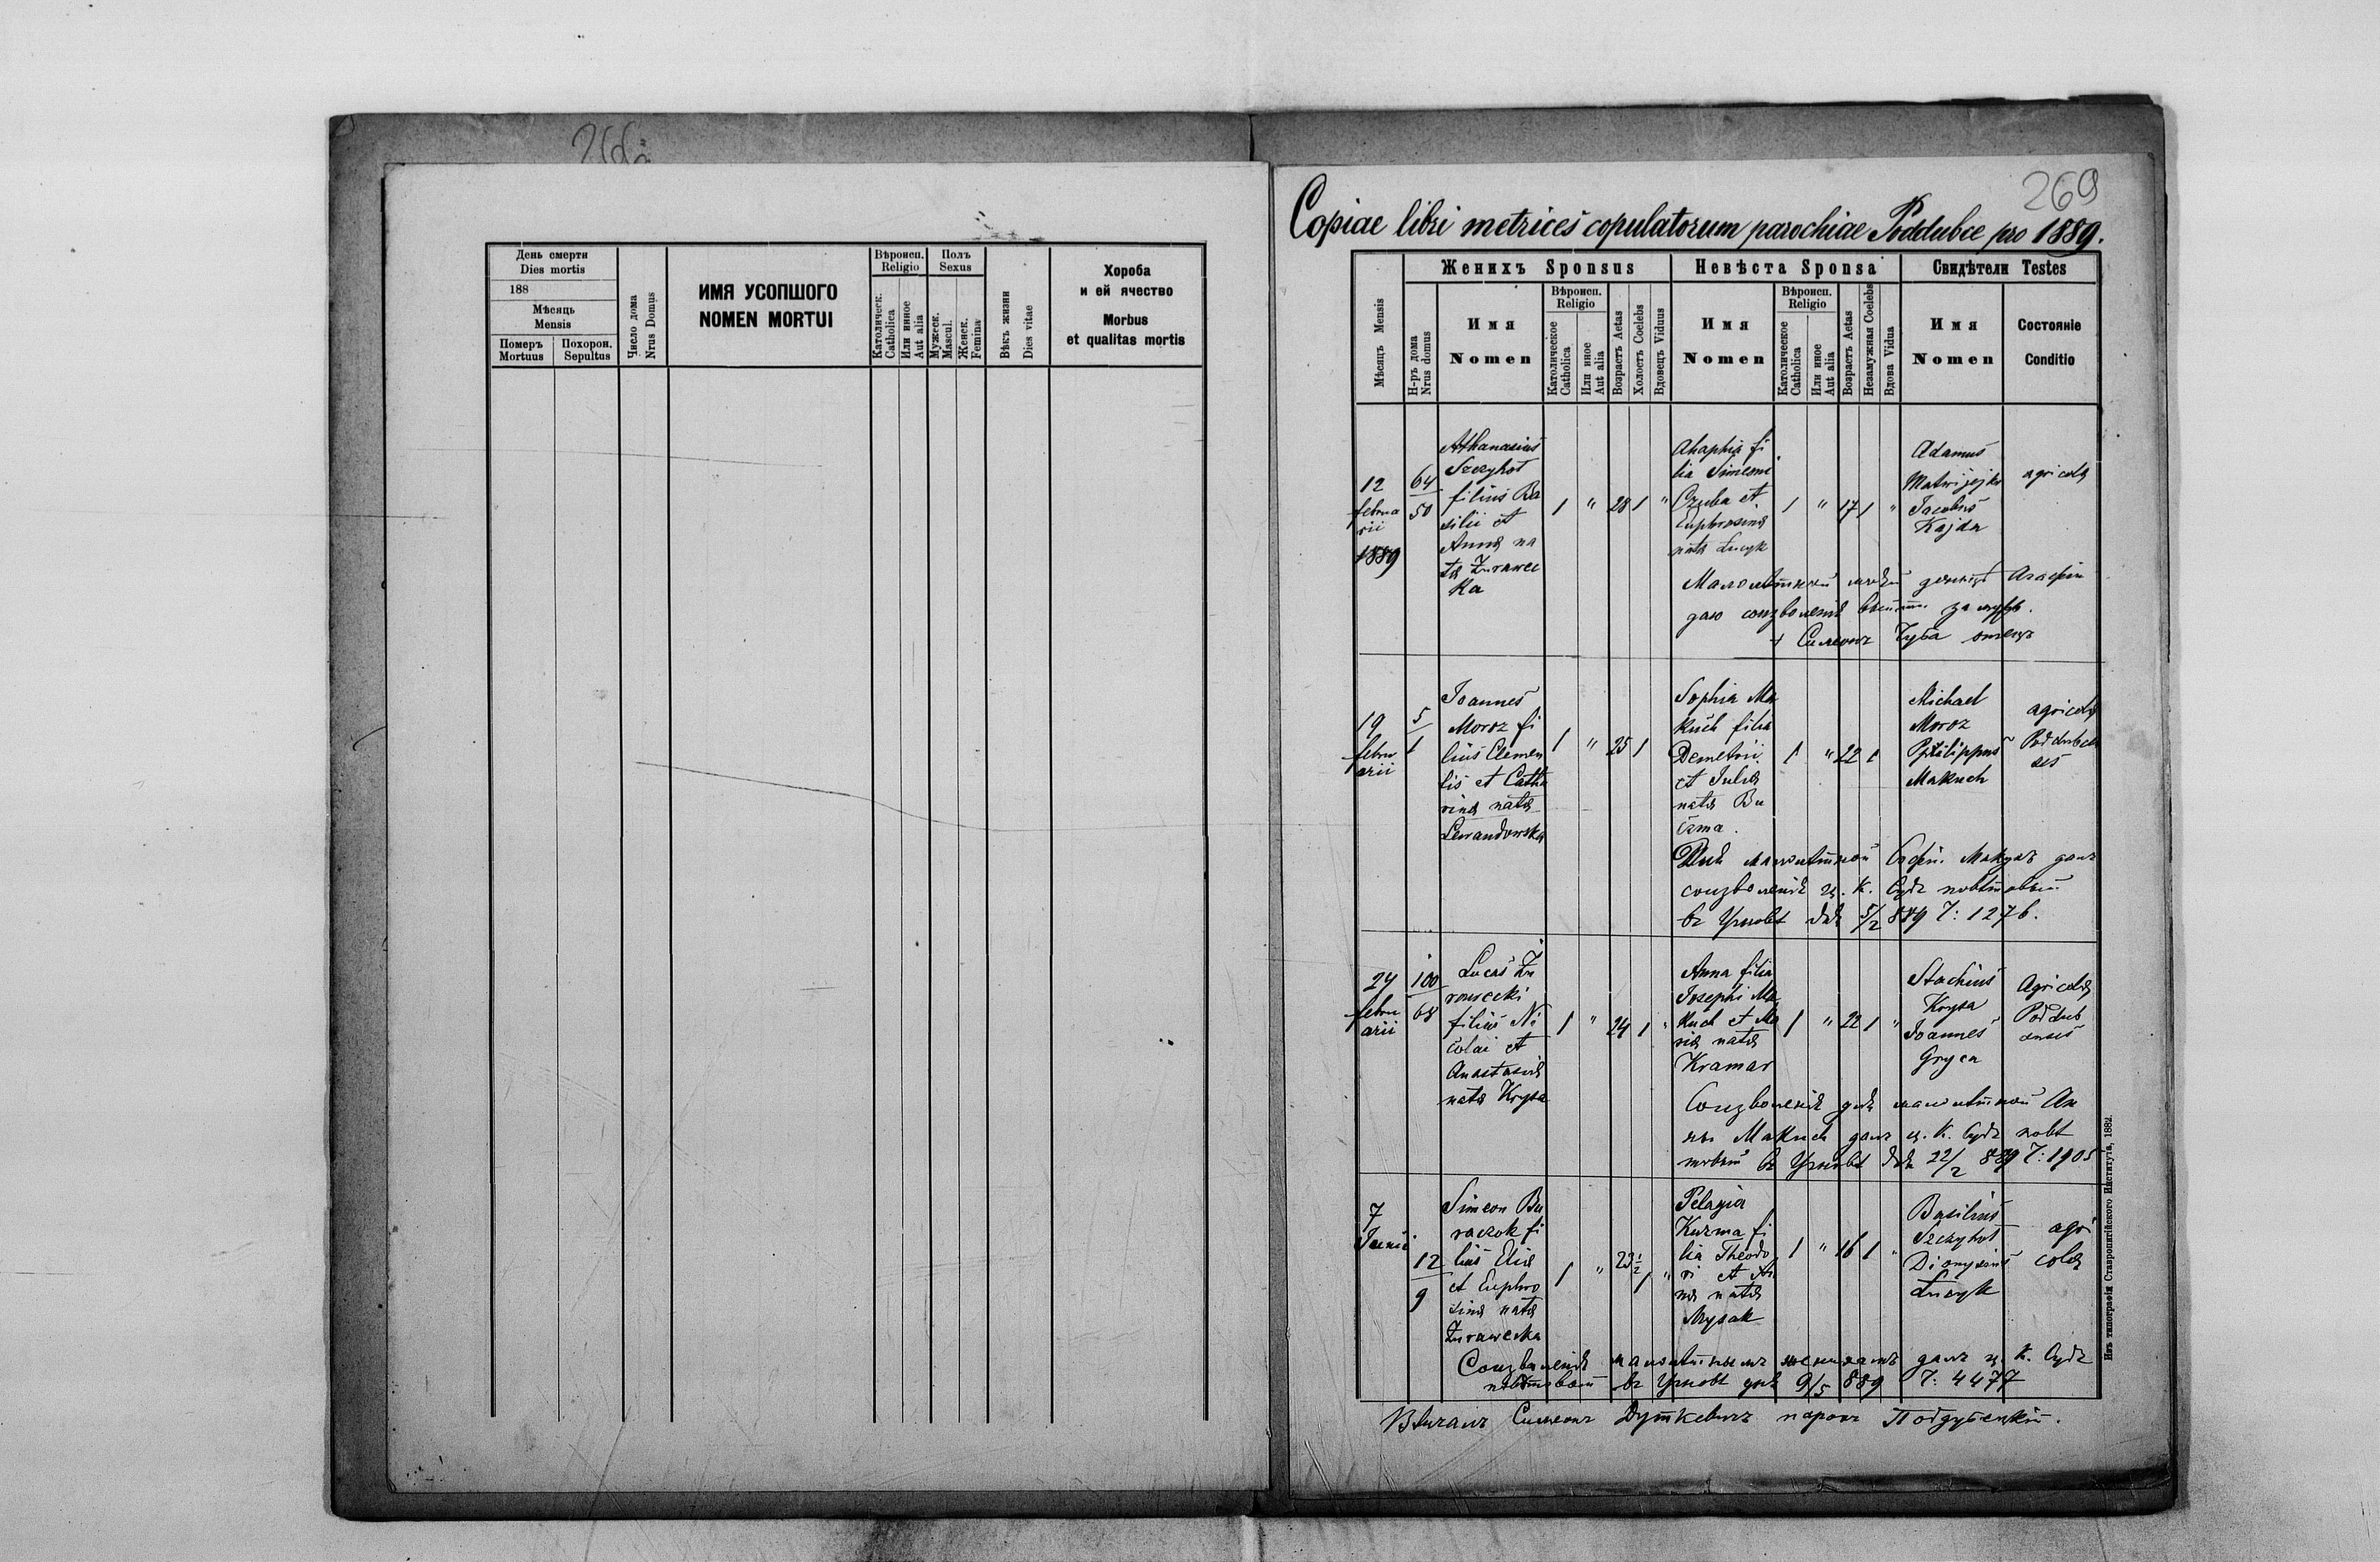 День смерти
Dies mortis
188
Мѣсяць
Mensis
Померъ
Mortuus
Похорон.
Sepultus
Число дома
Nrus Domus
ИМЯ УСОПШОГО
NOMEN MORTUI
Вѣроисп.
Religio
Католическ.
Catholica
Или иное
Aut alia
Полъ
Sexus
Мужеск.
Mascul.
Женск.
Femina
Вѣкъ жизни
Dies vitae
Хороба
и ей ячество
Morbus
et qualitas mortis
269
Copiae libri metrices copulatorum parochiae Poddubce pro 1889.
Мѣсяцъ Mensis
Женихъ Sponsus
Н-ръ дома
Nrus domus
Имя
Nomen
Вѣроисп.
Religio
Католическое
Catholica
Или иное
Aut alia
Возрастъ Aetas
Холостъ Coelebs
Вдовецъ Viduus
Невѣста Sponsa
Имя
Nomen
Вѣроисп.
Religio
Католическое
Catholica
Или иное
Aut alia
Возрастъ Aetas
Незамужная Coelebs
Вдова Vidua
Свидѣтели Testes
Имя
Nomen
Состояніе
Conditio
12
februa
rii
1889
64
50
Athanasius
Szczyhot
filius Ba
silii et
Anna na
ta Żurawec
ka
1 " 28 1 "
Ahaphia fi
lia Simeoni
Czuba et
Euphrosina
nata Łucyk
1 " 17 1 "
Adamus
Matwijejko
Jacobus
Kajda
agricola
Малолѣтной моей доньцѣ Агафіи
даю соизволеніе выйти замужъ.
+ Симеонъ Чуба отецъ
19
febru
arii
5
1
Joannes
Moroz fi
lius Clemen
tis et Catha
rina nata
Lewandowska
1 " 25 1
Sophia Ma
kuch filia
Demetrii
et Julia
nata Bu
czma.
1 " 22 1
Michael
Moroz
Philippus
Makuch
agricola
Для малолѣтной Софіи Макухъ далъ
соизволеніе ц. к. Судъ повѣтовый
въ Угновѣ дня 5/2 889 Ч: 1276.
24
febru
arii
100
68
Lucas Żu
rowecki
filius Ni
colai et
Anastasia
nata Krysa
1 " 24 1 "
Anna filia
Josephi Ma
kuch et Ma
ria nata
Kramar
1 " 22 1 "
Stachius
Krysa
Joannes
Gryca
Agricola
Соизволеніе для малолѣтной Ан
ны Makuch далъ ц. к. Судъ повѣ
товый въ Угновѣ дня 22/2 889 Ч: 1905
7
Junii
12
9
Simeon Bu
raczok fi
lius Elia
et Euphro
sina nata
Żurawecka
1 " 23 1/2 1 "
Pelagia
Kuzma fi
lia Theodo
ri et An
na nata
Mysak
1 " 16 1 "
Basilius
Szczyhot
Dionysius
Łucyk
agri
cola
Соизволеніе малолѣтнымъ женихамъ далъ ц. к. Судъ
повѣтовый въ Угновѣ дня 9/5 889 Ч: 4477
Вѣнчалъ Симеонъ Дуткевичъ парохъ Поддубецкій.
Изъ типографіи Ставропигійского Института, 1882.